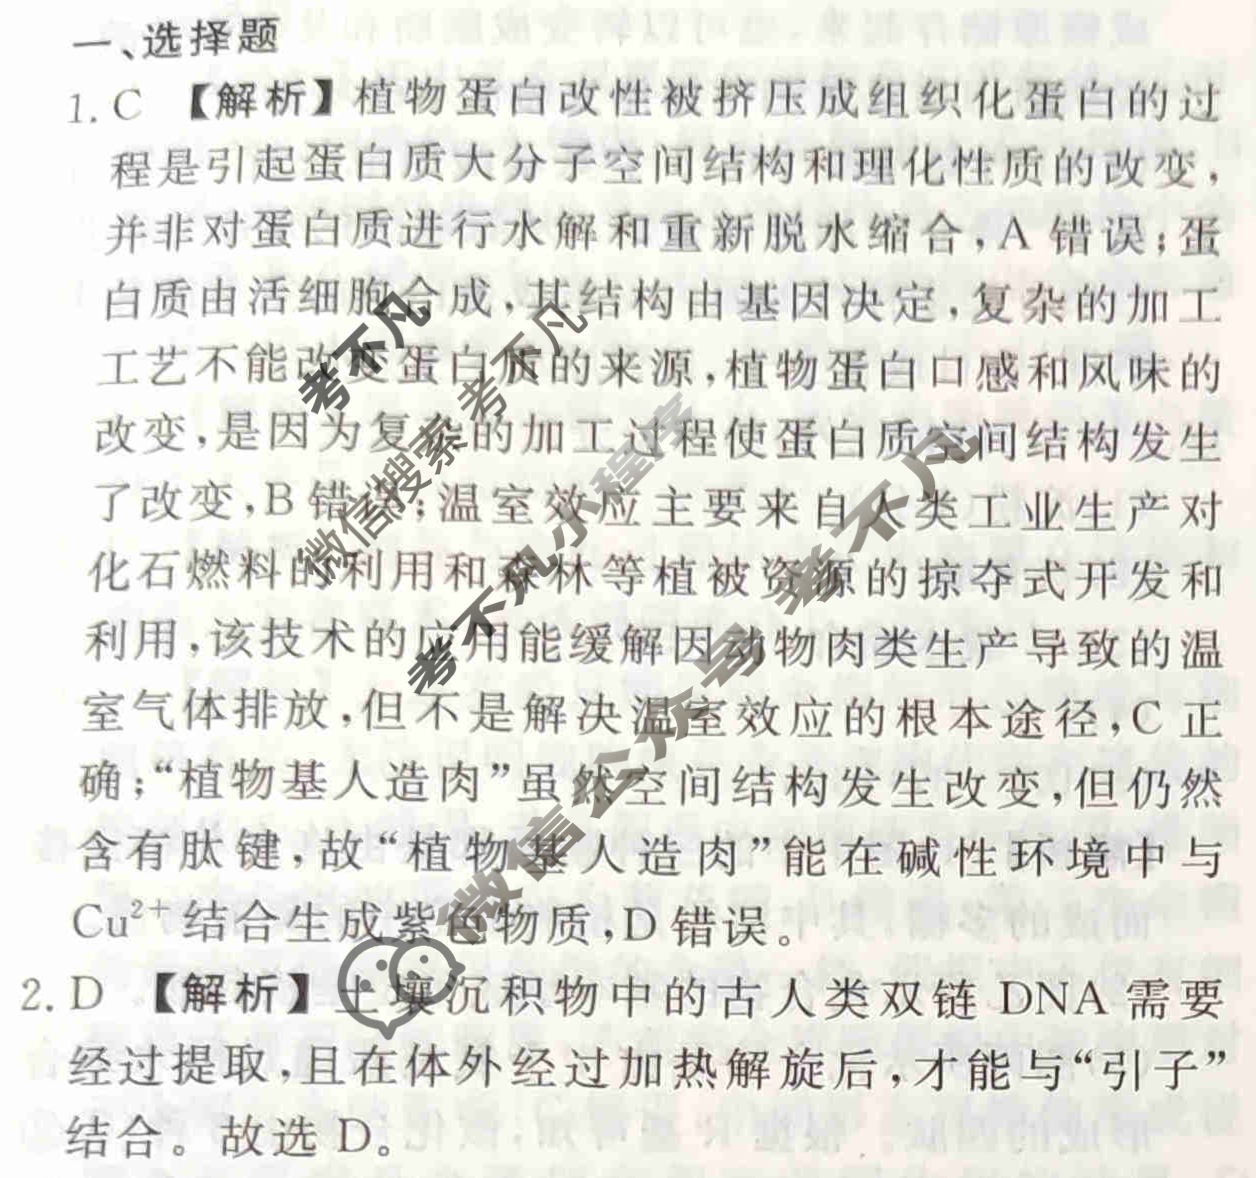 一、选择题
1. C 【解析】植物蛋白改性被挤压成组织化蛋白的过
程是引起蛋白质大分子空间结构和理化性质的改变，
并非对蛋白质进行水解和重新脱水缩合，A 错误；蛋
白质由活细胞合成，其结构由基因决定，复杂的加工
工艺不能改变蛋白质的来源，植物蛋白口感和风味的
改变，是因为复杂的加工过程使蛋白质空间结构发生
了改变，B 错误；温室效应主要来自人类工业生产对
化石燃料的利用和森林等植被资源的掠夺式开发和
利用，该技术的应用能缓解因动物肉类生产导致的温
室气体排放，但不是解决温室效应的根本途径，C 正
确；“植物基人造肉”虽然空间结构发生改变，但仍然
含有肽键，故“植物基人造肉”能在碱性环境中与
Cu²⁺结合生成紫色物质，D 错误。
2. D 【解析】土壤沉积物中的古人类双链 DNA 需要
经过提取，且在体外经过加热解旋后，才能与“引子”
结合。故选 D。
考不凡
微信搜索 考不凡
考不凡小程序
微信公众号 考不凡